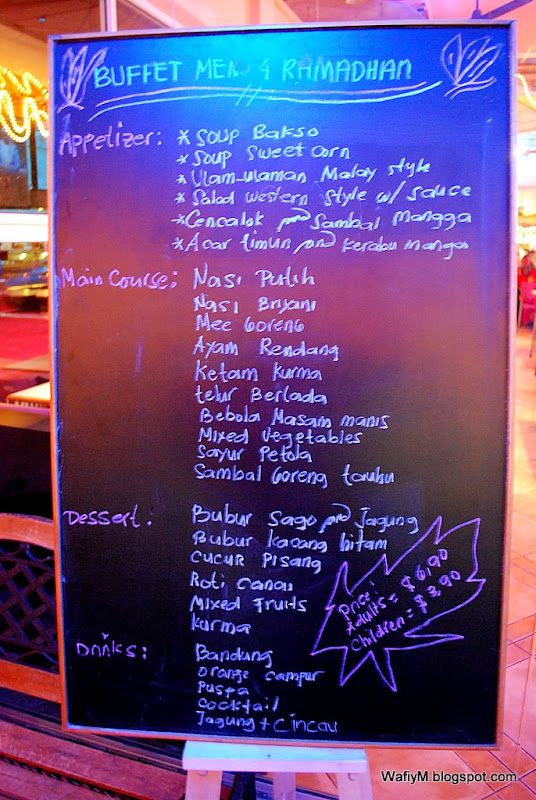 BUFFET MENU 4 RAMADHAN
Appetizer: * Soup Bakso
* Soup Sweet corn
* Ulam-ulaman Malay style
* Salad western style w/ sauce
* Cencalok and Sambal mangga
* Acar timun and kerabu mangga
Main Course: Nasi Putih
Nasi Briyani
Mee Goreng
Ayam Rendang
Ketam Kurma
telur Berlada
Bebola Masam manis
Mixed Vegetables
Sayur Petola
Sambal Goreng tauhu
Dessert: Bubur Sago and Jagung
Bubur kacang hitam
Cucur Pisang
Roti Canai
Mixed Fruits
kurma
Price:
Adults = $6.90
Children = $3.90
Drinks: Bandung
Orange campur
Puspa
Cocktail
Jagung + Cincau
WafiyM.blogspot.com